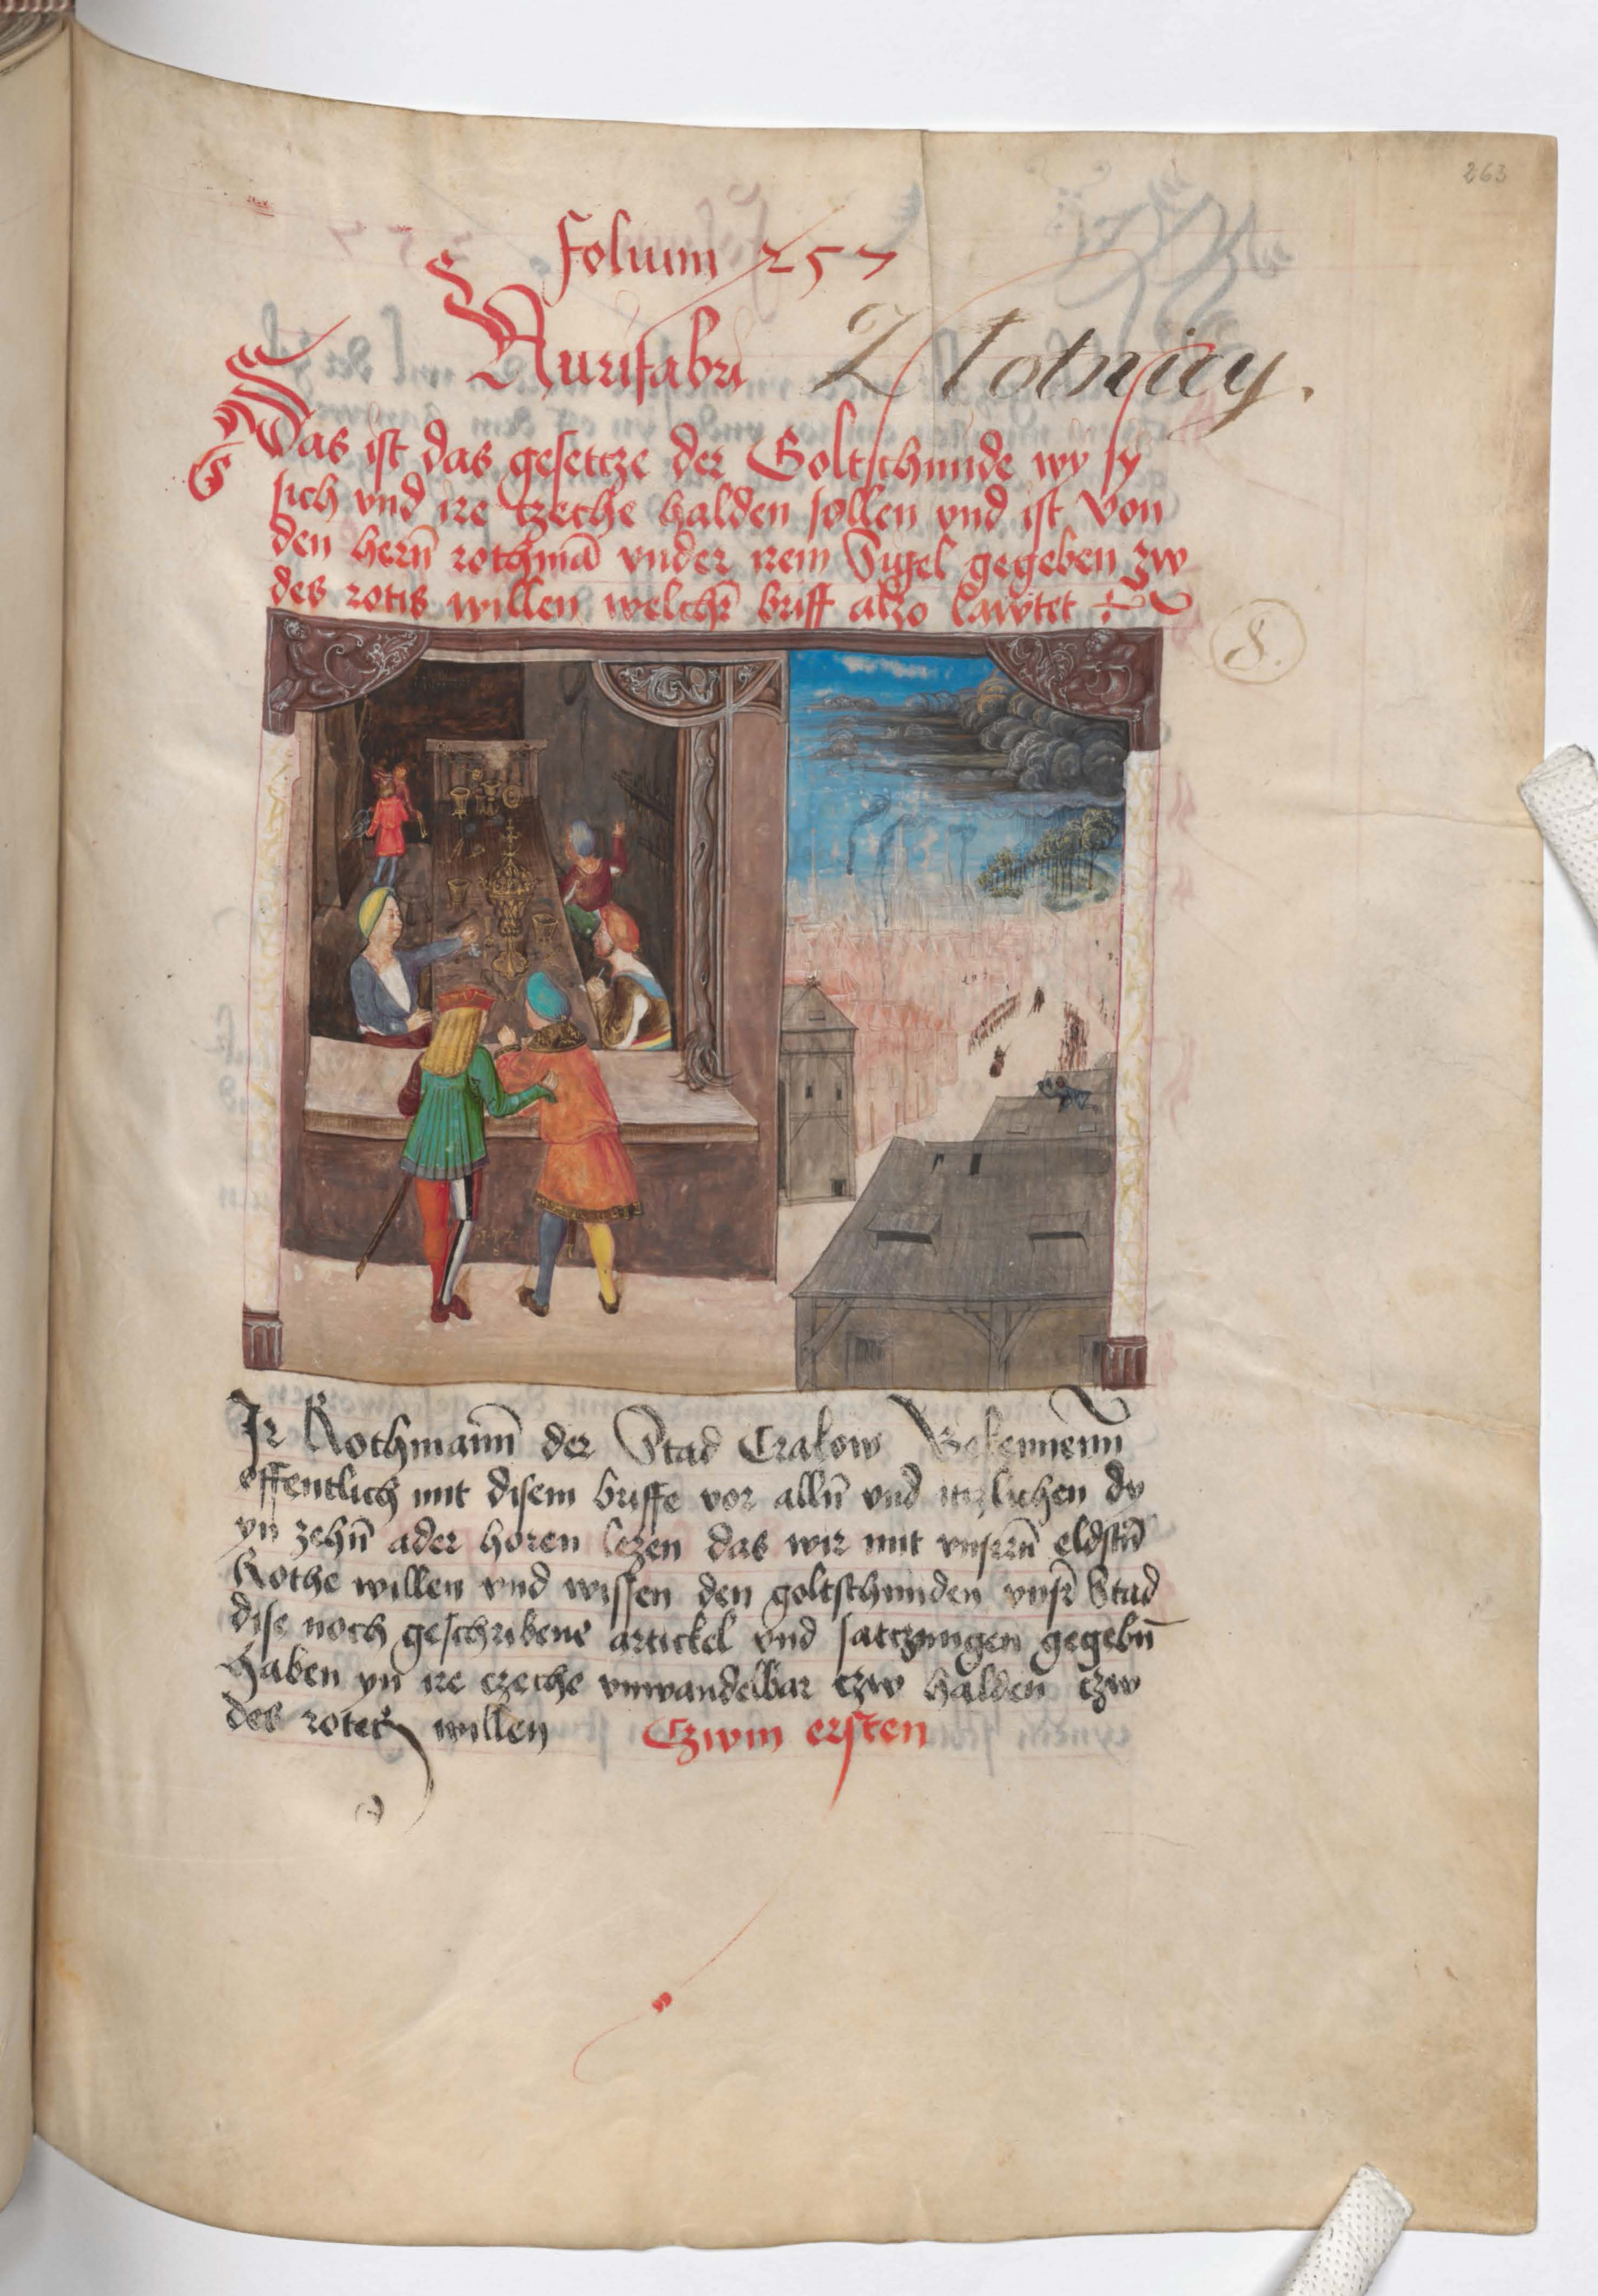 263
Folium 257
Aurifabri Złotnicy.
Das ist das gesetcze der Goltschmide wy sy
sich vnd ire tzeche halden sollen vnd ist von
den hern̄ rothmā vnder irem Sigel gegeben zw
des rotis willen welchr̄ briff alzo lawtet
8.
Ir Rothmann̄ der Stad Crakow Bekennenn
offentlich mit disem briffe vor alln̄ vnd itzlichen dy
yn zehn̄ ader horen lezen das wir mit vnsrn̄ eldstn̄
Rothe willen vnd wissen den goltschmiden vnsr̄ Stad
dise noch geschribene artickel vnd satczungen gegebn̄
haben yn ire czeche vnwandelbar czw halden czw
des rotes willen Czwm ersten